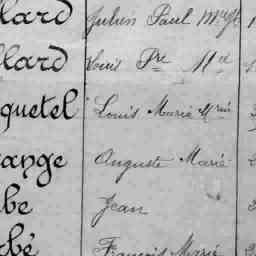 lard Julien Paul
lard Louis Pre
quetel Louis Marie
range Auguste Marie
be Jean
bé François Marie